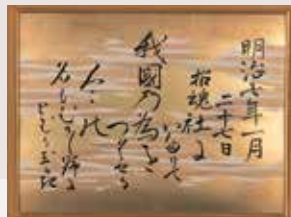 明治七年一月
二十七日
招魂社に
いたりて
我國乃為を
つくせる
人々の
名もむさし野に
とむる玉かき